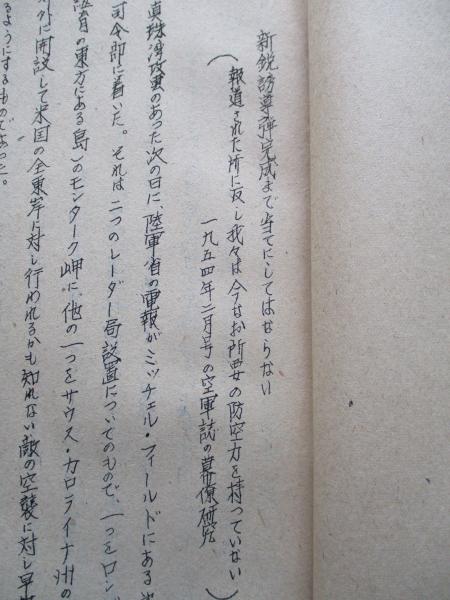 新鋭誘導弾完成まで当てにしてはならない
(報道された所に反し我々は今なお所要の防空力を持っていない
一九五四年二月号の空軍誌の幕僚研究)
真珠湾攻撃のあった次の日に、陸軍省の電報がミッチェル・フィールドにある
司令部に着いた。それは二つのレーダー局設置についてのもので、一つをロン
の東方にある島)のモンターク岬に、他の一つをサウス・カロライナ州の
外に開設して米国の全東岸に対し行われるかも知れない敵の空襲に対し早
るようにするものであった。